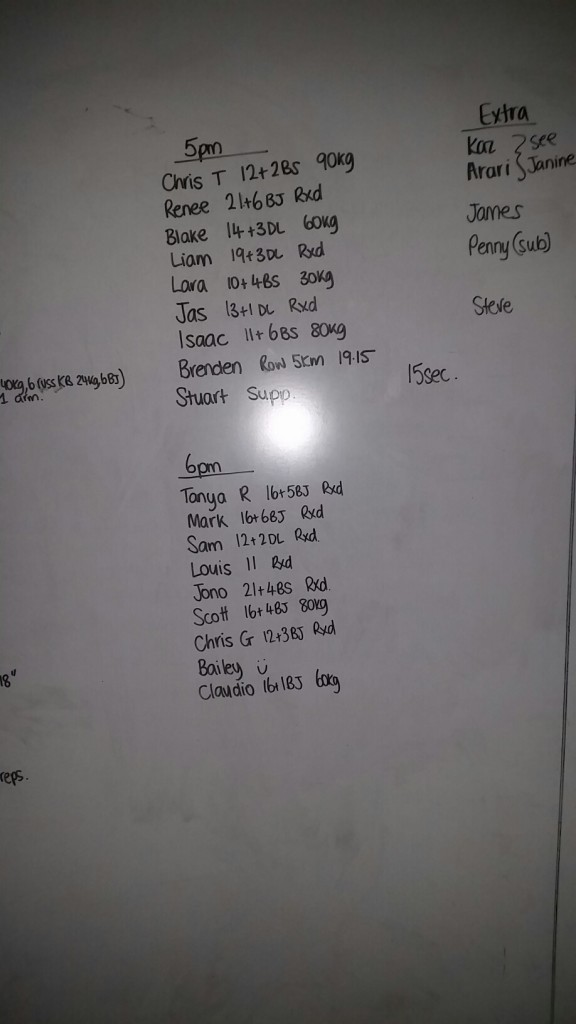 5pm
Chris T 12+2BS 90kg
Renee 21+6BJ Rxd
Blake 14+3DL 60kg
Liam 19+3DL Rxd
Lara 10+4BS 30kg
Jas 13+1DL Rxd
Isaac 11+6BS 80kg
Brenden Row 5km 19.15
Stuart Supp.
15sec.
6pm
Tanya R 16+5BJ Rxd
Mark 16+6BJ Rxd
Sam 12+2DL Rxd.
Louis 11 Rxd
Jono 21+4BS Rxd.
Scott 16+4BJ 80kg
Chris G 12+3BJ Rxd
Bailey ü
Claudio 16+1BJ 60kg
Extra
Kaz } see
Arari } Janine
James
Penny (sub)
Steve
40kg, 6 (uss KB 24kg, 6BJ)
1 arm.
18"
reps.